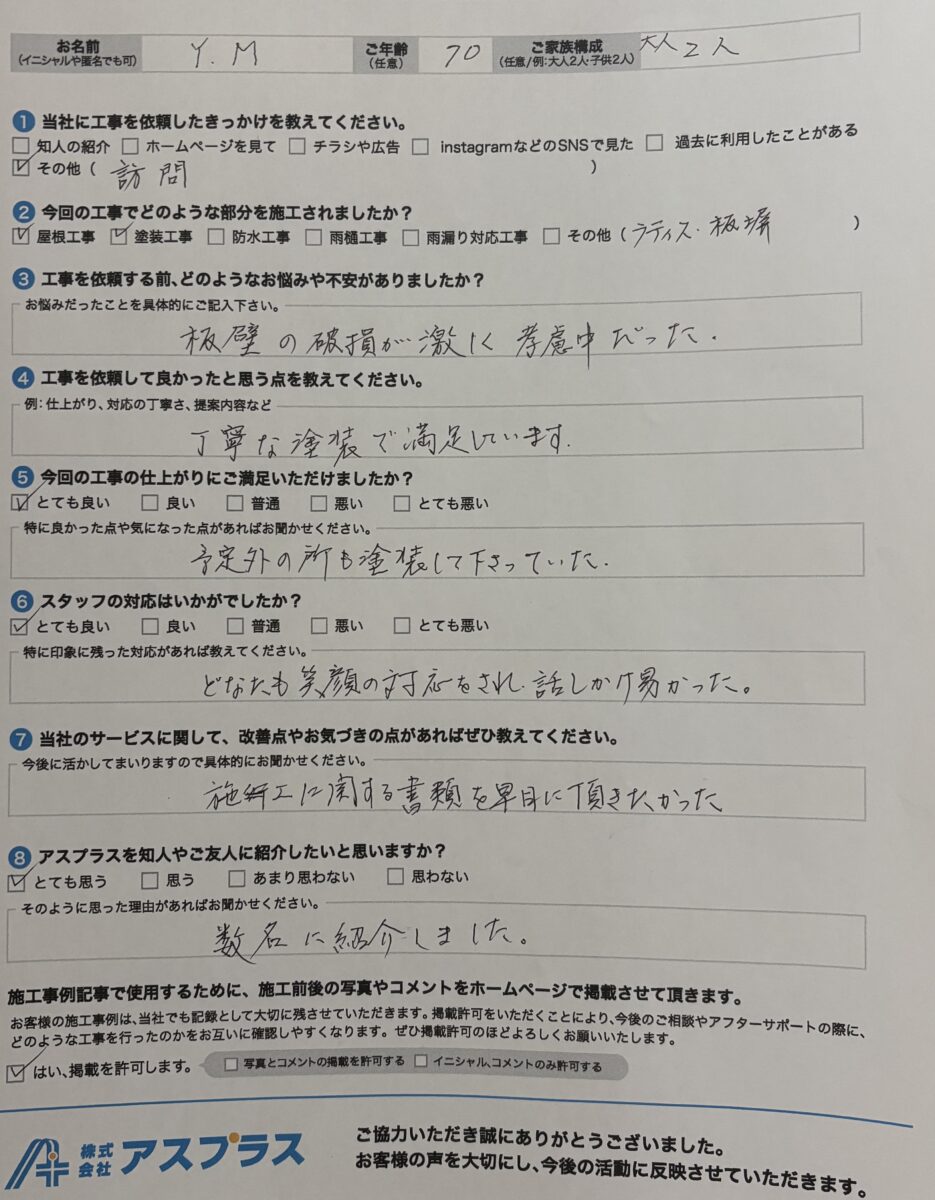 お名前 (イニシャルや匿名でも可) Y.M ご年齢 (任意) 70 ご家族構成 (任意/例:大人2人・子供2人) 大人2人
1 当社に工事を依頼したきっかけを教えてください。
□ 知人の紹介 □ ホームページを見て □ チラシや広告 □ instagramなどのSNSで見た □ 過去に利用したことがある
☑ その他 ( 訪問 )
2 今回の工事でどのような部分を施工されましたか?
☑ 屋根工事 ☑ 塗装工事 □ 防水工事 □ 雨樋工事 □ 雨漏り対応工事 □ その他 ( ラティス・板塀 )
3 工事を依頼する前、どのようなお悩みや不安がありましたか?
お悩みだったことを具体的にご記入下さい。
板壁の破損が激しく考慮中だった.
4 工事を依頼して良かったと思う点を教えてください。
例:仕上がり、対応の丁寧さ、提案内容など
丁寧な塗装で満足しています.
5 今回の工事の仕上がりにご満足いただけましたか?
☑ とても良い □ 良い □ 普通 □ 悪い □ とても悪い
特に良かった点や気になった点があればお聞かせください。
予定外の所も塗装して下さっていた.
6 スタッフの対応はいかがでしたか?
☑ とても良い □ 良い □ 普通 □ 悪い □ とても悪い
特に印象に残った対応があれば教えてください。
どなたも笑顔の対応をされ.話しかけ易かった。
7 当社のサービスに関して、改善点やお気づきの点があればぜひ教えてください。
今後に活かしてまいりますので具体的にお聞かせください。
施工に関する書類を早目に頂きたかった
8 アスプラスを知人やご友人に紹介したいと思いますか?
☑ とても思う □ 思う □ あまり思わない □ 思わない
そのように思った理由があればお聞かせください。
数名に紹介しました。
施工事例記事で使用するために、施工前後の写真やコメントをホームページで掲載させて頂きます。
お客様の施工事例は、当社でも記録として大切に残させていただきます。掲載許可をいただくことにより、今後のご相談やアフターサポートの際に、
どのような工事を行ったのかをお互いに確認しやすくなります。ぜひ掲載許可のほどよろしくお願いいたします。
☑ はい、掲載を許可します。 □ 写真とコメントの掲載を許可する □ イニシャル、コメントのみ許可する
株式会社 アスプラス
ご協力いただき誠にありがとうございました。
お客様の声を大切にし、今後の活動に反映させていただきます。